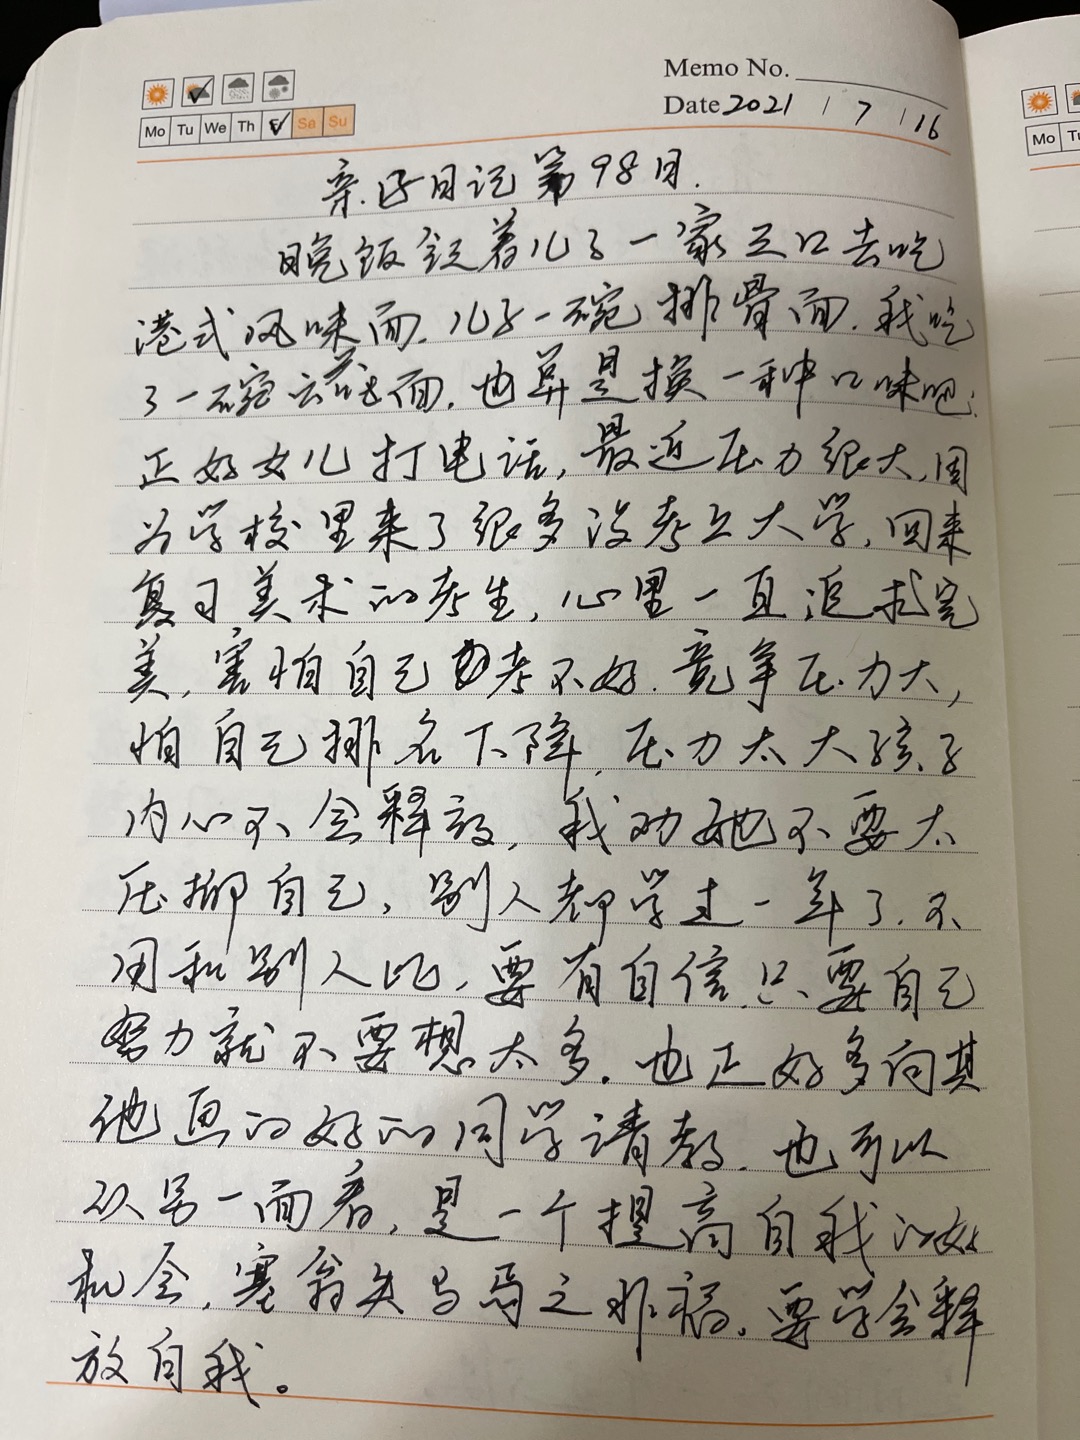 Memo No.
Date 2021 / 7 / 16
Mo Tu We Th F Sa Su
亲子日记第98日.
晚饭后着儿子一家三口去吃
港式风味面.儿子一碗排骨面.我吃
了一碗云吞面.也算是换一种口味吧.
正好女儿打电话,最近压力很大,因
为学校里来了很多没考上大学,回来
复习美术的考生,心里一直追求完
美,害怕自己考不好.竞争压力大,
怕自己排名下降,压力太大孩子
内心不会释放,我劝她不要太
压抑自己,别人都学过一年了.不
用和别人比,要有自信.只要自己
努力就不要想太多.也正好多向其
他画的好的同学请教.也可以
从另一面看,是一个提高自我的好
机会,塞翁失马焉之非福.要学会释
放自我。
Mo Tu